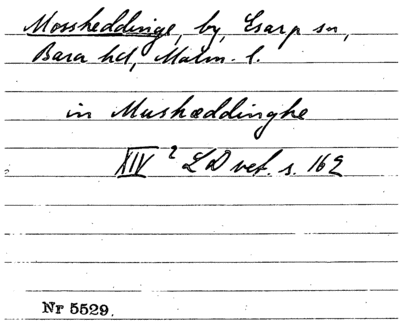 Mossheddinge, by, Esarp sn,
Bara hd, Malm. l.
in Mushæddinghe
XIV 2 LD vet. s. 162
Nr 5529.